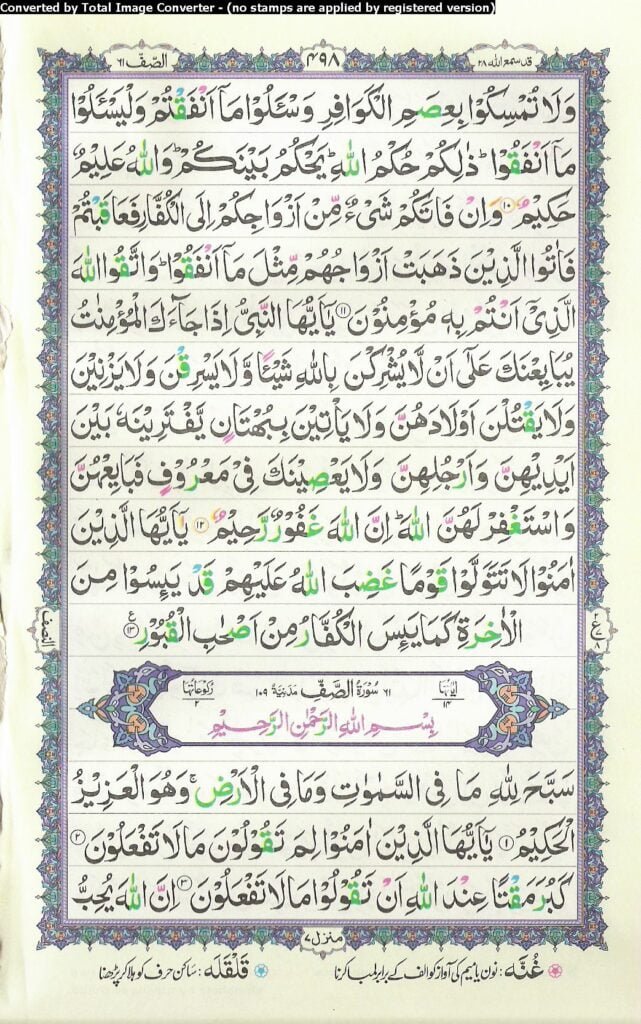 Converted by Total Image Converter - (no stamps are applied by registered version)
قد سمع الله ٢٨
٤٩٨
الصّفّ ٦١
وَلَا تُمْسِكُوْا بِعِصَمِ الْكَوَافِرِ وَسْـَٔلُوْا مَاۤ اَنْفَقْتُمْ وَلْيَسْـَٔلُوْا
مَاۤ اَنْفَقُوْا ؕ ذٰلِكُمْ حُكْمُ اللّٰهِ ؕ يَحْكُمُ بَيْنَكُمْ ؕ وَاللّٰهُ عَلِيْمٌ
حَكِيْمٌ ۝۱۰ وَاِنْ فَاتَكُمْ شَىْءٌ مِّنْ اَزْوَاجِكُمْ اِلَى الْكُفَّارِ فَعَاقَبْتُمْ
فَاٰتُوا الَّذِيْنَ ذَهَبَتْ اَزْوَاجُهُمْ مِّثْلَ مَاۤ اَنْفَقُوْا ؕ وَاتَّقُوا اللّٰهَ
الَّذِىْۤ اَنْتُمْ بِهٖ مُؤْمِنُوْنَ ۝۱۱ يٰۤاَيُّهَا النَّبِىُّ اِذَا جَآءَكَ الْمُؤْمِنٰتُ
يُبَايِعْنَكَ عَلٰٓى اَنْ لَّا يُشْرِكْنَ بِاللّٰهِ شَيْـًٔا وَّلَا يَسْرِقْنَ وَلَا يَزْنِيْنَ
وَلَا يَقْتُلْنَ اَوْلَادَهُنَّ وَلَا يَاْتِيْنَ بِبُهْتَانٍ يَّفْتَرِيْنَهٗ بَيْنَ
اَيْدِيْهِنَّ وَاَرْجُلِهِنَّ وَلَا يَعْصِيْنَكَ فِىْ مَعْرُوْفٍ فَبَايِعْهُنَّ
وَاسْتَغْفِرْ لَهُنَّ اللّٰهَ ؕ اِنَّ اللّٰهَ غَفُوْرٌ رَّحِيْمٌ ۝۱۲ يٰۤاَيُّهَا الَّذِيْنَ
اٰمَنُوْا لَا تَتَوَلَّوْا قَوْمًا غَضِبَ اللّٰهُ عَلَيْهِمْ قَدْ يَئِسُوْا مِنَ
الْاٰخِرَةِ كَمَا يَئِسَ الْكُفَّارُ مِنْ اَصْحٰبِ الْقُبُوْرِ ۝۱۳ ع
النصف
ع ٧ ٨
اٰيٰتُهَا ١٤
٦١ سُوْرَةُ الصَّفِّ مَدَنِيَّةٌ ١٠٩
رُكُوْعَاتُهَا ٢
بِسْمِ اللّٰهِ الرَّحْمٰنِ الرَّحِيْمِ
سَبَّحَ لِلّٰهِ مَا فِى السَّمٰوٰتِ وَمَا فِى الْاَرْضِ ۚ وَهُوَ الْعَزِيْزُ
الْحَكِيْمُ ۝۱ يٰۤاَيُّهَا الَّذِيْنَ اٰمَنُوْا لِمَ تَقُوْلُوْنَ مَا لَا تَفْعَلُوْنَ ۝۲
كَبُرَ مَقْتًا عِنْدَ اللّٰهِ اَنْ تَقُوْلُوْا مَا لَا تَفْعَلُوْنَ ۝۳ اِنَّ اللّٰهَ يُحِبُّ
منزل ٧
غُنَّه: نون یا میم کی آواز کو الف کے برابر لمبا کرنا
قَلْقَلَه: ساکن حرف کو ہلا کر پڑھنا